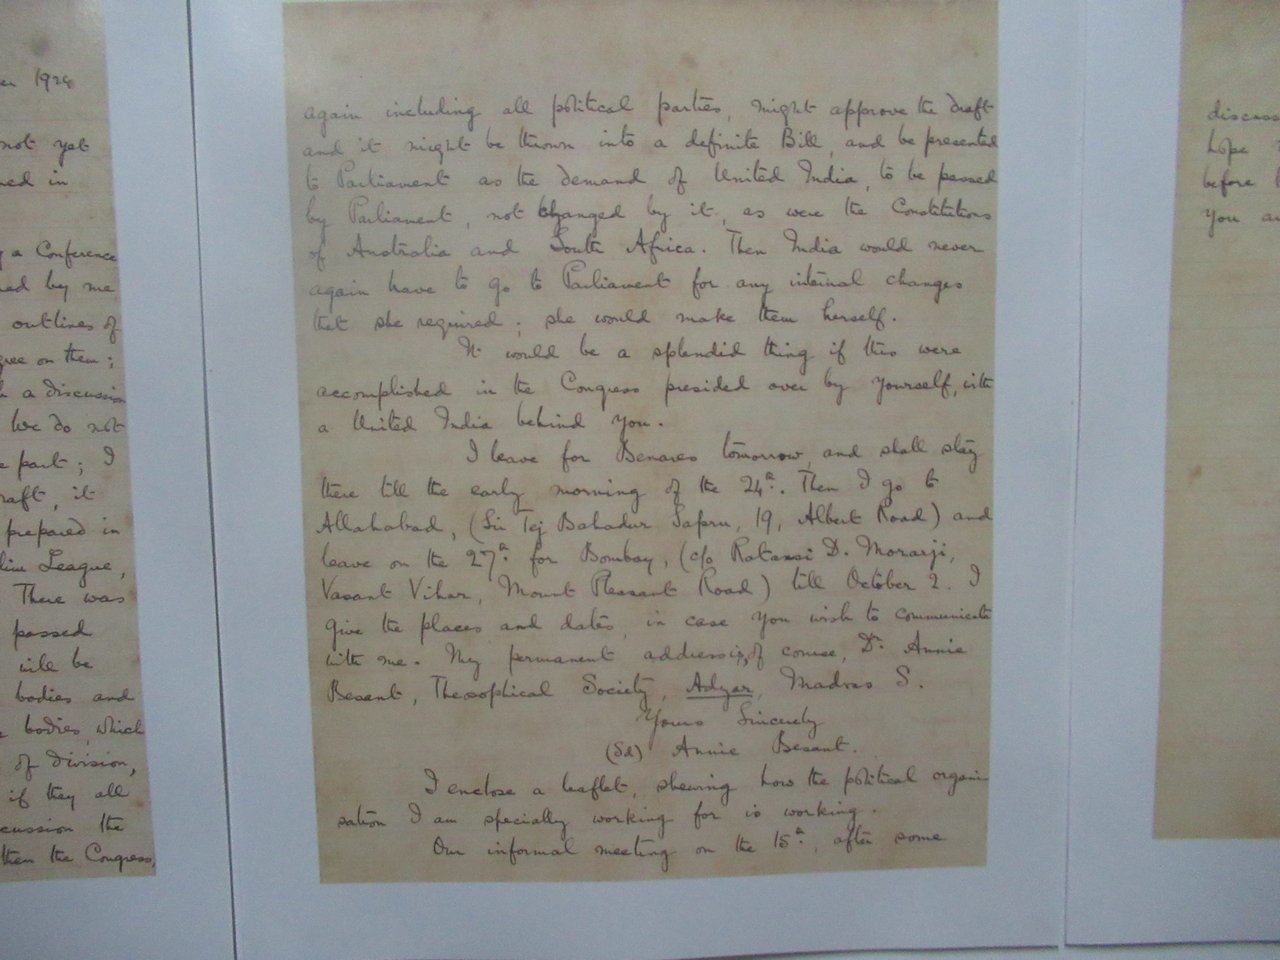 1924
not yet
ned in
a Conference
ned by me
outlines of
gree on them;
a discussion
We do not
part; I
raft, it
prepared in
lim League,
There was
passed
will be
bodies and
bodies, which
of division,
if they all
cussion the
then the Congress,
again including all political parties, might approve the draft
and it might be thrown into a definite Bill, and be presented
to Parliament as the demand of United India, to be passed
by Parliament, not changed by it, as were the Constitutions
of Australia and South Africa. Then India would never
again have to go to Parliament for any internal changes
that she required; she would make them herself.
It would be a splendid thing if this were
accomplished in the Congress presided over by yourself, with
a United India behind you.
I leave for Benares tomorrow, and shall stay
there till the early morning of the 24th. Then I go to
Allahabad, (Sir Tej Bahadur Sapru, 19, Albert Road) and
leave on the 27th for Bombay, (c/o Ratansi D. Morarji,
Vasant Vihar, Mount Pleasant Road) till October 2. I
give the places and dates, in case you wish to communicate
with me. My permanent address is, of course, Dr. Annie
Besant, Theosophical Society, Adyar, Madras S.
Yours Sincerely
(Sd) Annie Besant.
I enclose a leaflet, shewing how the political organi
sation I am specially working for is working.
Our informal meeting on the 15th, after some
discuss
hope
before
you